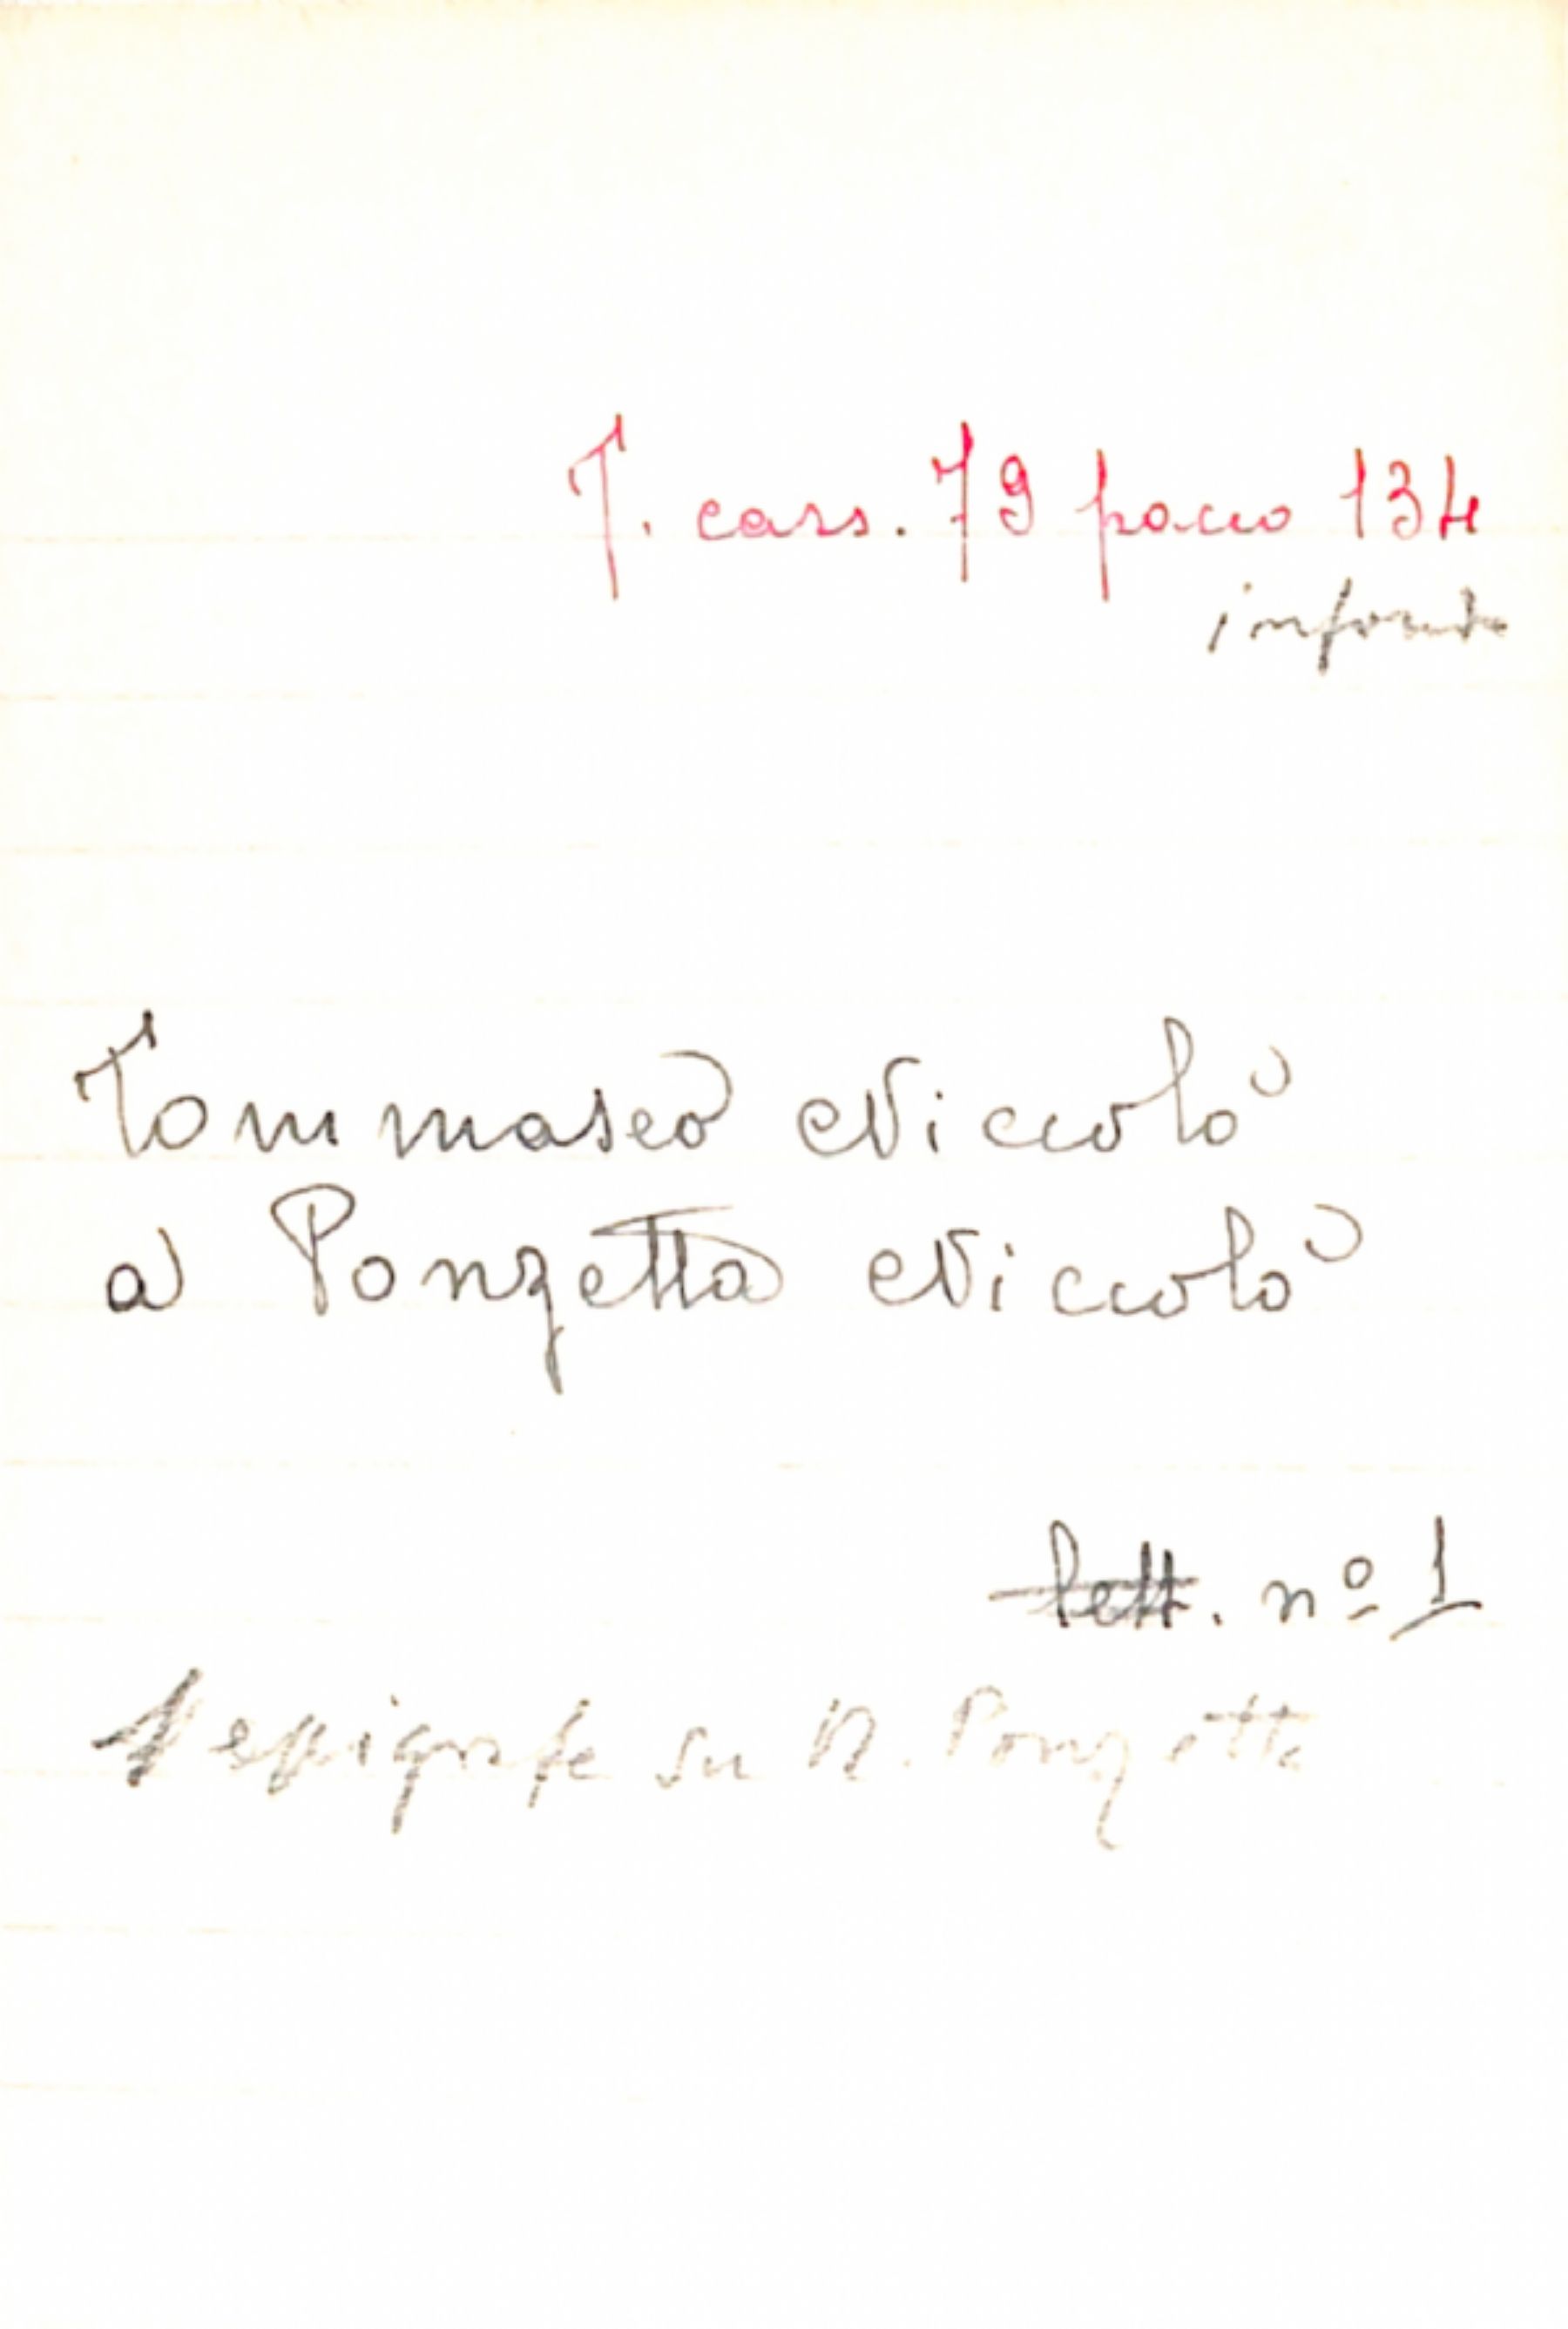 T. cass. 79 pacco 134
in fondo
Tommaseo Niccolò
a Ponzetta Niccolò
lett. nº 1
1 epigrafe su N. Ponzetta